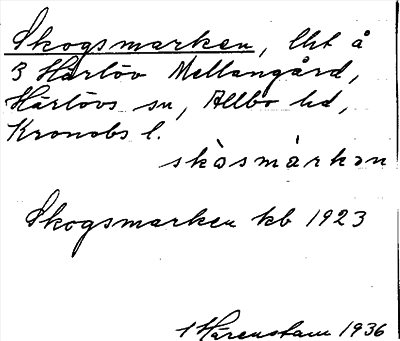 Skogsmarken, lht å
3 Härlöv Mellangård,
Härlövs sn, Allbo hd,
Kronobs l.
skòsmàrkən
Skogsmarken kb 1923
Härenstam 1936